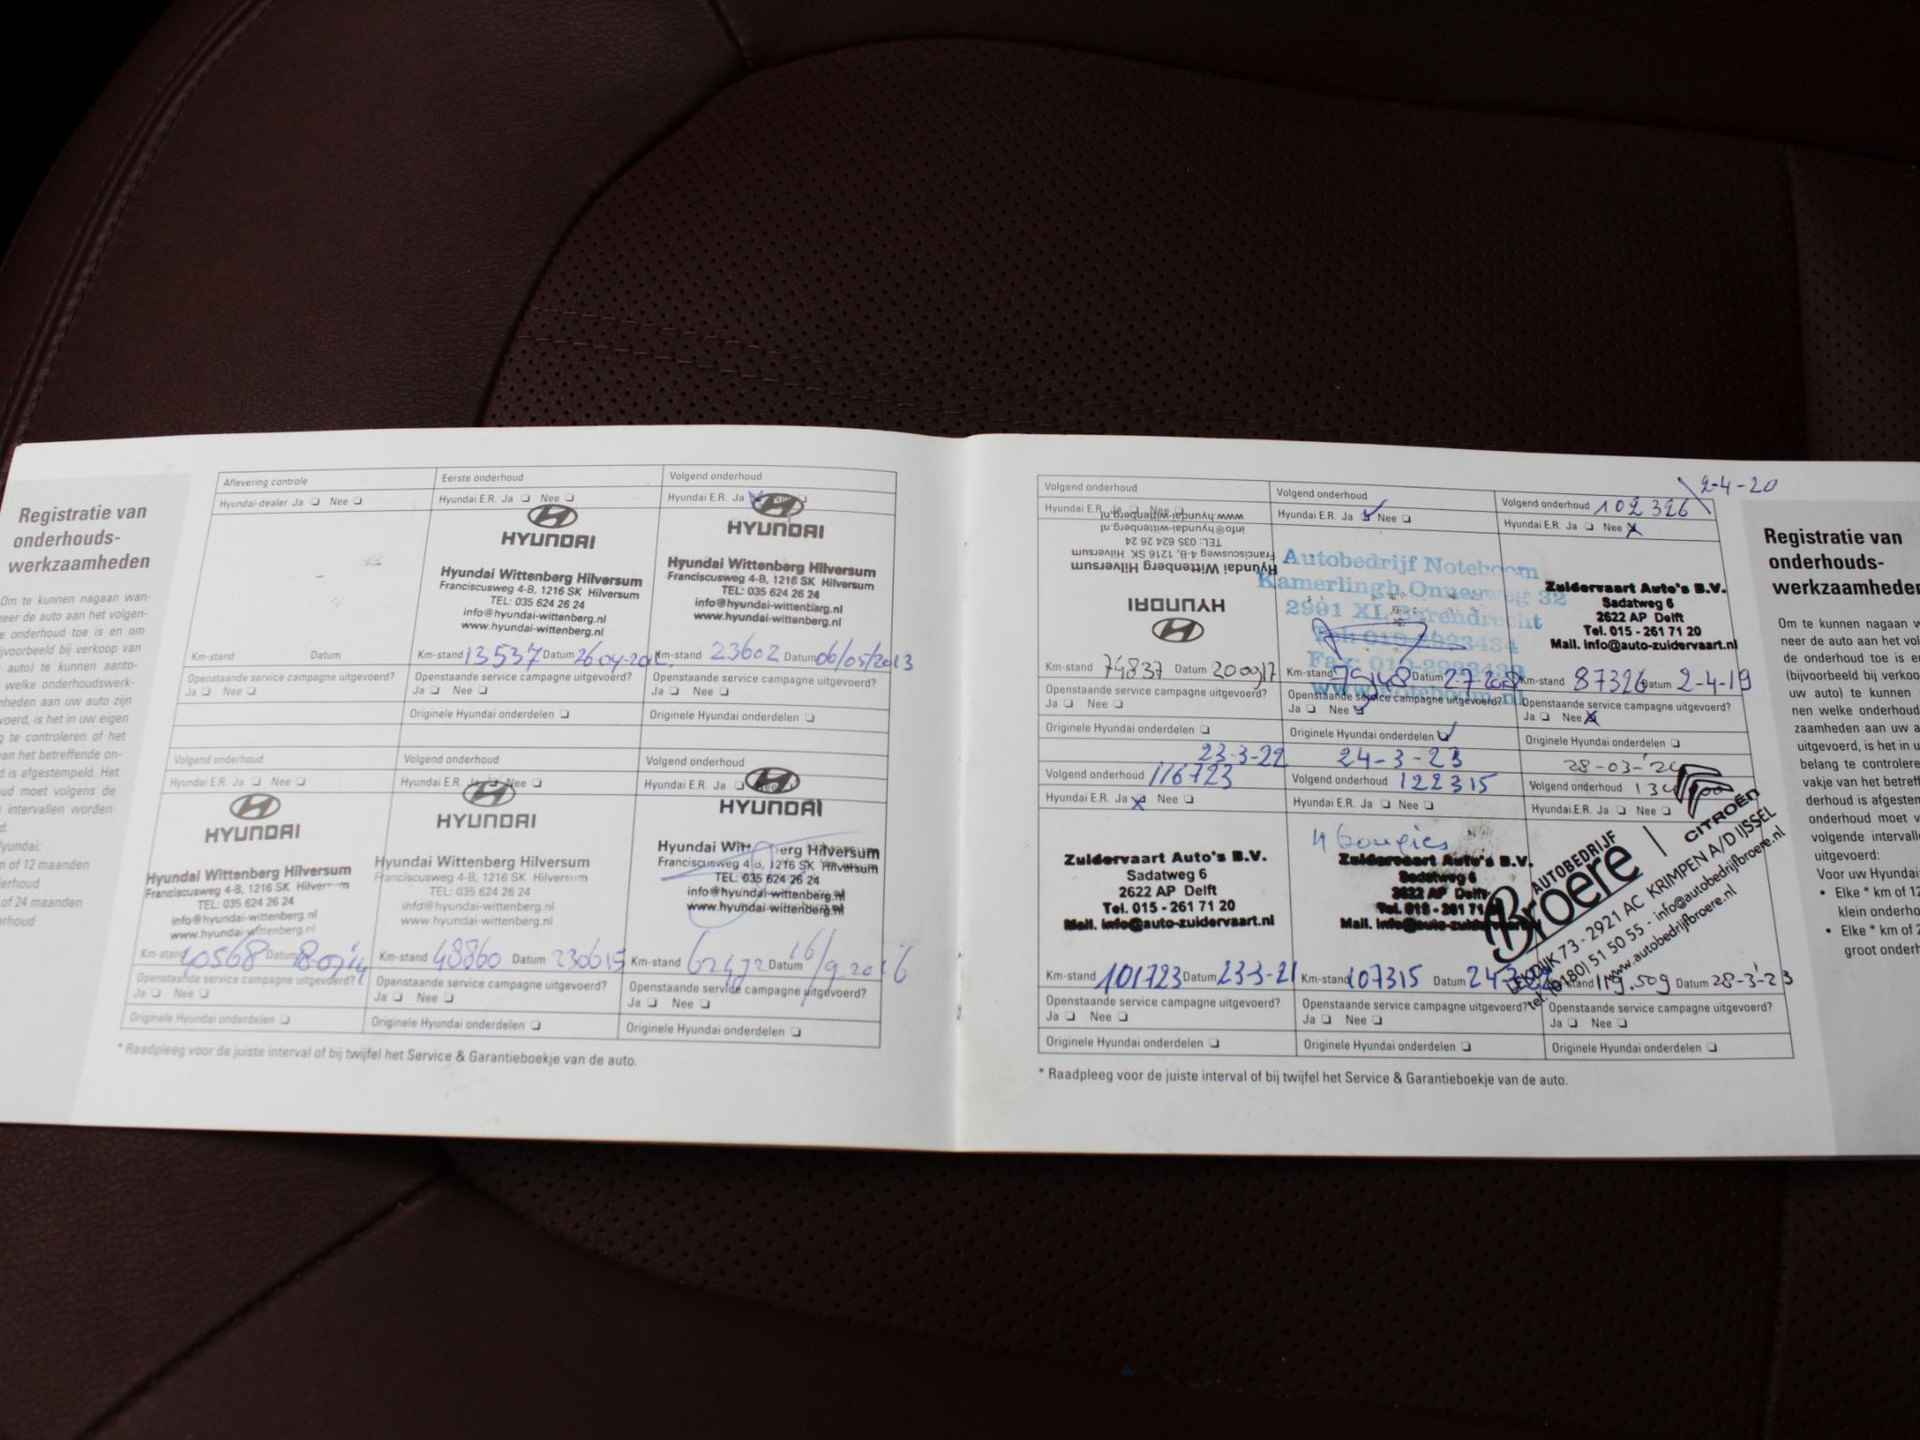 Registratie van
onderhouds-
werkzaamheden
Om te kunnen nagaan wan-
neer de auto aan het volgen-
de onderhoud toe is en om
(bijvoorbeeld bij verkoop van
auto) te kunnen aanto-
welke onderhoudswerk-
aan uw auto zijn
is het in uw eigen
te controleren of het
het betreffende on-
is afgestempeld. Het
moet volgens de
intervallen worden
of 12 maanden
of 24 maanden
Aflevering controle
Hyundai-dealer Ja ❑ Nee ❑
Km-stand Datum
Openstaande service campagne uitgevoerd?
Ja ❑ Nee ❑
Eerste onderhoud
Hyundai E.R. Ja ❑ Nee ❑
HYUNDAI
Hyundai Wittenberg Hilversum
Franciscusweg 4-B, 1216 SK Hilversum
TEL: 035 624 26 24
info@hyundai-wittenberg.nl
www.hyundai-wittenberg.nl
Km-stand 13537 Datum
Openstaande service campagne uitgevoerd?
Ja ❑ Nee ❑
Originele Hyundai onderdelen ❑
Volgend onderhoud
Hyundai E.R. Ja
HYUNDAI
Hyundai Wittenberg Hilversum
Franciscusweg 4-B, 1216 SK Hilversum
TEL: 035 624 26 24
info@hyundai-wittenberg.nl
www.hyundai-wittenberg.nl
Km-stand 23602 Datum 06/05/2013
Openstaande service campagne uitgevoerd?
Ja ❑ Nee ❑
Originele Hyundai onderdelen ❑
Volgend onderhoud
Hyundai E.R. Ja ❑ Nee ❑
HYUNDAI
Hyundai Wittenberg Hilversum
Franciscusweg 4-B, 1216 SK Hilversum
TEL: 035 624 26 24
info@hyundai-wittenberg.nl
www.hyundai-wittenberg.nl
Km-stand 40568 Datum
Openstaande service campagne uitgevoerd?
Ja ❑ Nee ❑
Originele Hyundai onderdelen ❑
Volgend onderhoud
Hyundai E.R. Ja ❑ Nee ❑
HYUNDAI
Hyundai Wittenberg Hilversum
Franciscusweg 4-B, 1216 SK Hilversum
TEL: 035 624 26 24
info@hyundai-wittenberg.nl
www.hyundai-wittenberg.nl
Km-stand 48860 Datum 230615
Openstaande service campagne uitgevoerd?
Ja ❑ Nee ❑
Originele Hyundai onderdelen ❑
Volgend onderhoud
Hyundai E.R. Ja ❑
HYUNDAI
Hyundai Wittenberg Hilversum
Franciscusweg 1216 SK Hilversum
TEL: 035 624 26 24
info@hyundai-wittenberg.nl
www.hyundai-wittenberg.nl
Km-stand Datum 16/9.2016
Openstaande service campagne uitgevoerd?
Ja ❑ Nee ❑
Originele Hyundai onderdelen ❑
* Raadpleeg voor de juiste interval of bij twijfel het Service & Garantieboekje van de auto.
Volgend onderhoud
Hyundai E.R. Ja
www.hyundai-wittenberg.nl
info@hyundai-wittenberg.nl
TEL: 035 624 26 24
Franciscusweg 4-B, 1216 SK Hilversum
Hyundai Wittenberg Hilversum
HYUNDAI
Km-stand 74837 Datum 200917
Openstaande service campagne uitgevoerd?
Ja ❑ Nee ❑
Originele Hyundai onderdelen ❑
23-3-22
Volgend onderhoud
Hyundai E.R. Ja ❑ Nee ❑
Autobedrijf Noteboom
Kamerlingh Onnesweg 32
2991 XL Barendrecht
Km-stand Datum
Openstaande service campagne uitgevoerd?
Ja ❑ Nee ❑
Originele Hyundai onderdelen ❑
24-3-23
2-4-20
Volgend onderhoud 102326
Hyundai E.R. Ja ❑ Nee ❑
Zuidervaart Auto's B.V.
Sadatweg 6
2622 AP Delft
Tel. 015 - 261 71 20
Mail. info@auto-zuidervaart.nl
Km-stand 87326 Datum 2-4-19
Openstaande service campagne uitgevoerd?
Ja ❑ Nee ❑
Originele Hyundai onderdelen ❑
Volgend onderhoud 116723
Hyundai E.R. Ja ❑ Nee ❑
Zuidervaart Auto's B.V.
Sadatweg 6
2622 AP Delft
Tel. 015 - 261 71 20
Mail. info@auto-zuidervaart.nl
Km-stand 101723 Datum 23-3-21
Openstaande service campagne uitgevoerd?
Ja ❑ Nee ❑
Originele Hyundai onderdelen ❑
Volgend onderhoud 122315
Hyundai E.R. Ja ❑ Nee ❑
4 bougies
Zuidervaart Auto's B.V.
Sadatweg 6
2622 AP Delft
Km-stand 107315 Datum
Openstaande service campagne uitgevoerd?
Ja ❑ Nee ❑
Originele Hyundai onderdelen ❑
Volgend onderhoud
Hyundai E.R. Ja ❑ Nee ❑
CITROËN
AUTOBEDRIJF
Broere
73 - 2921 AC KRIMPEN A/D IJSSEL
51 50 55 - info@autobedrijfbroere.nl
www.autobedrijfbroere.nl
119.509 Datum 28-3-'23
Openstaande service campagne uitgevoerd?
Ja ❑ Nee ❑
Originele Hyundai onderdelen ❑
* Raadpleeg voor de juiste interval of bij twijfel het Service & Garantieboekje van de auto.
Registratie van
onderhouds-
werkzaamheden
Om te kunnen nagaan
neer de auto aan het
de onderhoud toe is
(bijvoorbeeld bij
uw auto) te kunnen
nen welke
zaamheden aan uw
uitgevoerd, is het in
belang te
vakje van het
derhoud is
onderhoud moet
volgende
uitgevoerd:
Voor uw Hyundai
• Elke * km of
klein
• Elke * km of
groot